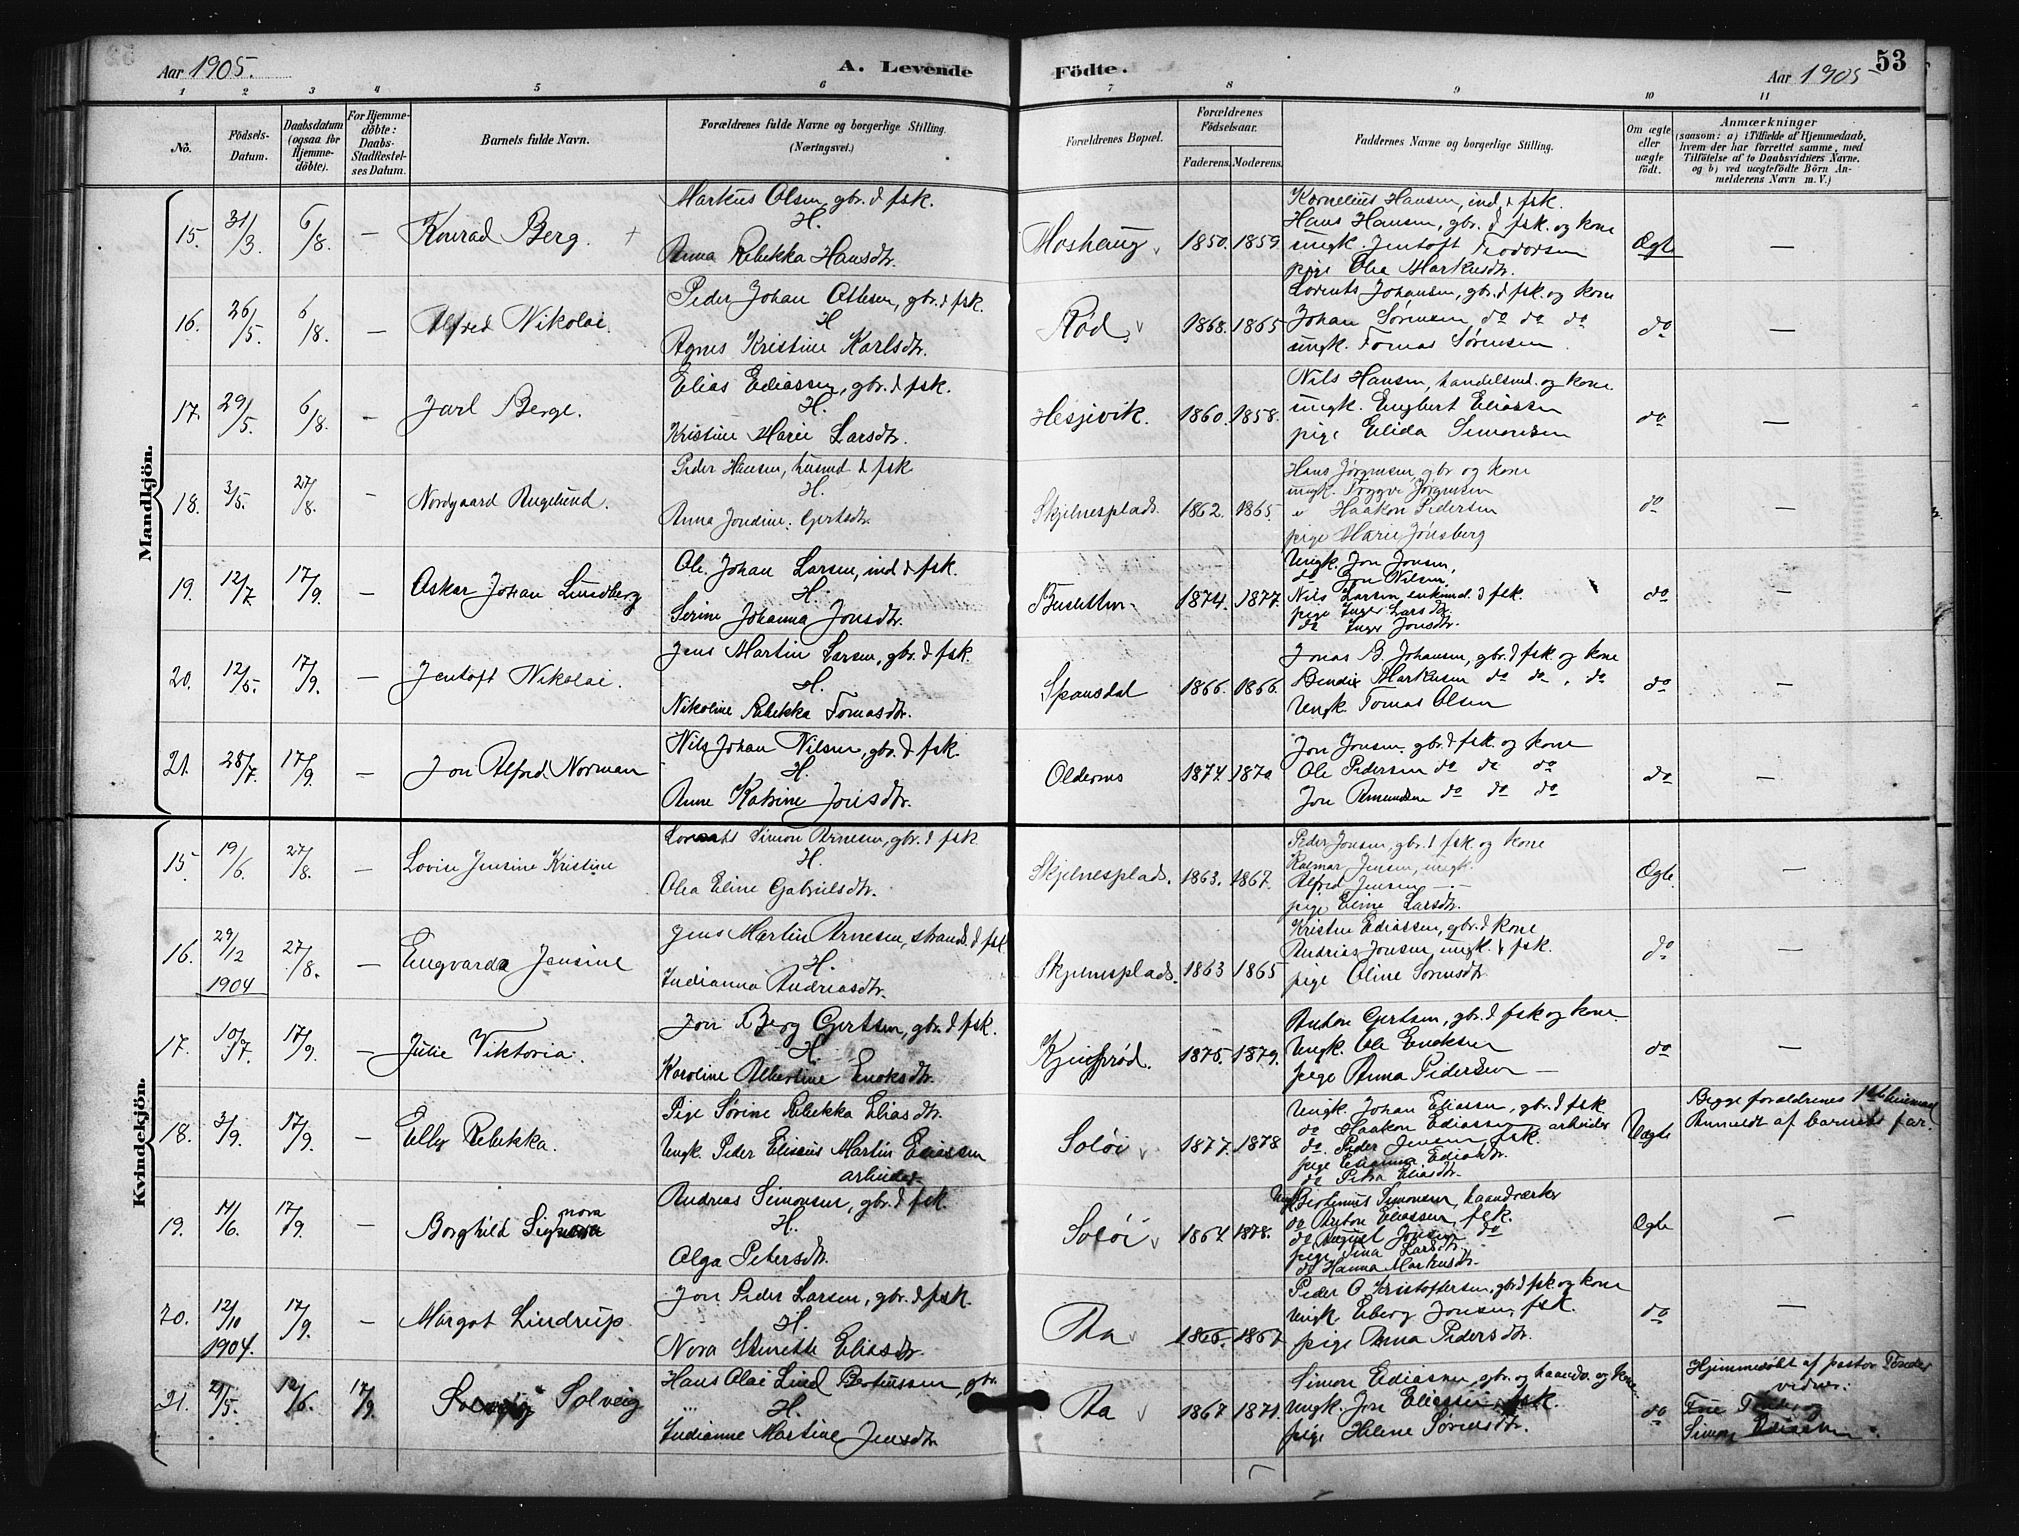 Aar 1905.
A. Levende
Födte.
Aar 1905
53
1 2 3 4 5 6 7 8 9 10 11
No.
Födsels-Datum.
Daabsdatum (ogsaa for Hjemme-döbte).
For Hjemme-döbte: Daabs-Stadfæstel-ses Datum.
Barnets fulde Navn.
Forældrenes fulde Navne og borgerlige Stilling.
(Næringsvei.)
Forældrenes Bopæl.
Forældrenes Födselsaar.
Faderens. Moderens.
Faddernes Navne og borgerlige Stilling.
Om ægte eller uægte födt.
Anmærkninger
(saasom: a) i Tilfælde af Hjemmedaab,
hvem der har forrettet samme, med
Tilföielse af to Daabsvidners Navne.
og b) ved uægtefödte Börn An-
melderens Navn m. V.)
Mandkjön.
15. 31/3. 6/8. — Konrad Berg. +
Markus Olsen, gbr. & fsk.
H.
Anna Rebekka Hansdtr.
Moshaug 1850. 1859.
Kornelius Hansen, ind. & fsk.
Hans Hansen, gbr. & fsk. og kone
ungk. Jentoft Teodorsen
pige Olea Markusdtr.
Ægte —
16. 26/5. 6/8. — Alfred Nikolai.
Peder Johan Ottesen, gbr. & fsk.
H
Agnes Kristine Karlsdtr.
Rød 1868. 1865
Lorents Johansen, gbr. & fsk. og kone
Johan Sørensen do do do
ungk. Tomas Sørensen.
do —
17. 29/5. 6/8. — Jarl Berge.
Elias Ediassen, gbr. & fsk.
H.
Kristine Marie Larsdtr.
Hesjevik. 1860. 1858.
Nils Hansen, handelsmd. og kone
ungk. Engbert Eliassen
pige Elida Simonsen
do —
18. 3/5. 27/8. — Nordgaard Angelund.
Peder Hansen, husmd & fsk.
H.
Anna Jondine Gertsdtr.
Skjelnesplads. 1862. 1865.
Hans Jørgensen, gbr og kone
ungk. Tryggve Jørgensen
" Haakon Pedersen
pige Marie Jønsberg
do —
19. 12/7 17/9. — Oskar Johan Lundberg
Ole Johan Larsen, ind & fsk.
H.
Serine Johanna Jonsdtr.
1874. 1877.
Ungk. Jon Jonsen,
do Jon Nilsen,
Nils Larsen enkemd. & fsk.
pige Inger Larsdtr.
do Inger Jonsdtr.
do —
20. 12/5. 17/9. — Jentoft Nikolai.
Jens Martin Larsen, gbr. & fsk.
H.
Nikoline Rebekka Tomasdtr.
Spansdal 1866. 1866.
Jonas B. Johansen, gbr. & fsk. og kone
Bendix Markusen do do, do
Ungk. Tomas Olsen
do —
21. 28/7. 17/9. — Jon Alfred Norman
Nils Johan Nilsen, gbr. & fsk.
H.
Anne Katrine Jonsdtr.
Oldernes 1874. 1870
Jon Jonsen, gbr. & fsk. og kone
Ole Pedersen do do do
Jon Amundsen do do do
do —
Kvindekjön.
15. 19/6. 27/8. — Lovise Jensine Kristine
Lorents Simon Arnesen, gbr. & fsk
H.
Olea Eline Gabrielsdtr.
Skjelnesplads. 1863. 1867.
Peder Jonsen, gbr. & fsk. og kone
Kalmar Jensen, ungk.
Alfred Jensen —
pige Eline Larsdtr.
Ægte. —
16. 29/12 1904 27/8. — Engvarda Jensine
Jens Martin Arnesen, strands. & fsk
H.
Indianna Andriasdtr.
Skjelnesplads. 1863 1865
Kristen Ediassen, gbr. & kone
Andrias Jonsen, ungk. & fsk.
pige Oline Sørensdtr.
do —
17. 10/7. 17/9. — Julie Viktoria.
Jon Berg Gertsen, gbr. & fsk.
H.
Karoline Albertine Enoksdtr.
1875. 1879.
Anton Gertsen, gbr. & fsk og kone.
Ungk. Ole Enoksen
pige Anna Pedersen —
do —
18. 3/9. 17/9. — Elly Rebekka.
Pige Sørine Rebekka Eliasdtr.
Ungk. Peder Eliseus Martin Eliassen
arbeider
Soløi 1877. 1878
Ungk. Johan Eliassen, gbr. & fsk.
do Haakon Ediassen arbeider
do. Peder Jensen, fsk.
pige Edianna Ediasdtr.
do Petra Eliasdtr.
Uægte
Begge forældrenes
Anmeldt af barnets far.
19. 14/6. 17/9. — Borghild Signora nora
Andreas Simonsen, gbr. & fsk.
H.
Olga Petersdtr.
Soløi 1864. 1878.
Ungk. Bertinius Simonsen, haandværker
do Anton Eliassen, fsk.
do August Jonsen do
pige Tina Larsdtr.
do Hanna Markusdtr.
Ægte —
20. 12/10 1904. 17/9. — Margot Lindrup.
Jon Peder Larsen, gbr. & fsk.
H.
Nora Eliasdtr.
Aa 1866. 1867
Peder O Kristoffersen, gbr. & fsk og kone
Ungk Eberg Jonsen, fsk.
pige Anna Pedersdtr.
do —
21. 2/5. 12/6. 17/9. Solveig
Hans Olai Lind Bertiussen, gbr.
H.
Indianne Martine Jensdtr
Aa 1867 1871.
Simon Ediassen, gbr. og haandv. og kone
Ungk. Jon Eliassen, fsk.
pige Helene Sørensdtr.
do
Hjemmedøbt af pastor Tønder
vidner:
Frue og
Simon Ediassen.